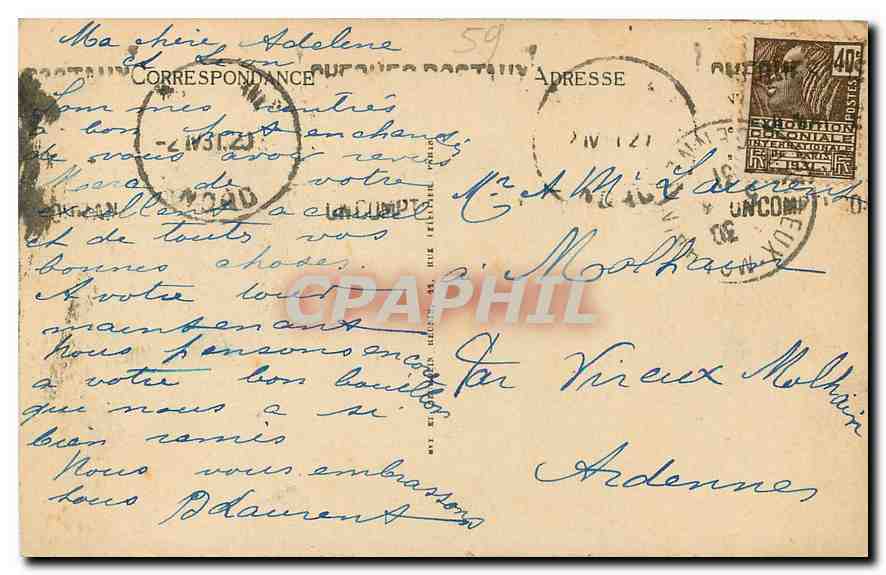 Ma chère Adelene
et Leon
59
CORRESPONDANCE
CHEQUES POSTAUX
ADRESSE
Som mes rentrés
a bon port enchantés
de vous avoir revus
Merci de votre
excellent accueil
et de toutes vos
bonnes choses.
A votre tour
maintenant
Nous pensons encore
a votre bon bouillon
qui nous a si
bien remis
Nous vous embrassons
tous Laurent
-2 IV 31.20
NORD
UN COMPT
40c
POSTES
EXPOSITION
COLONIALE
INTERNATIONALE
PARIS 1931
UN COMPT
VIREUX-MOLHAIN
Mr A Me Laurent
à Molhain
Par Vireux Molhain
Ardennes
CPAPHIL